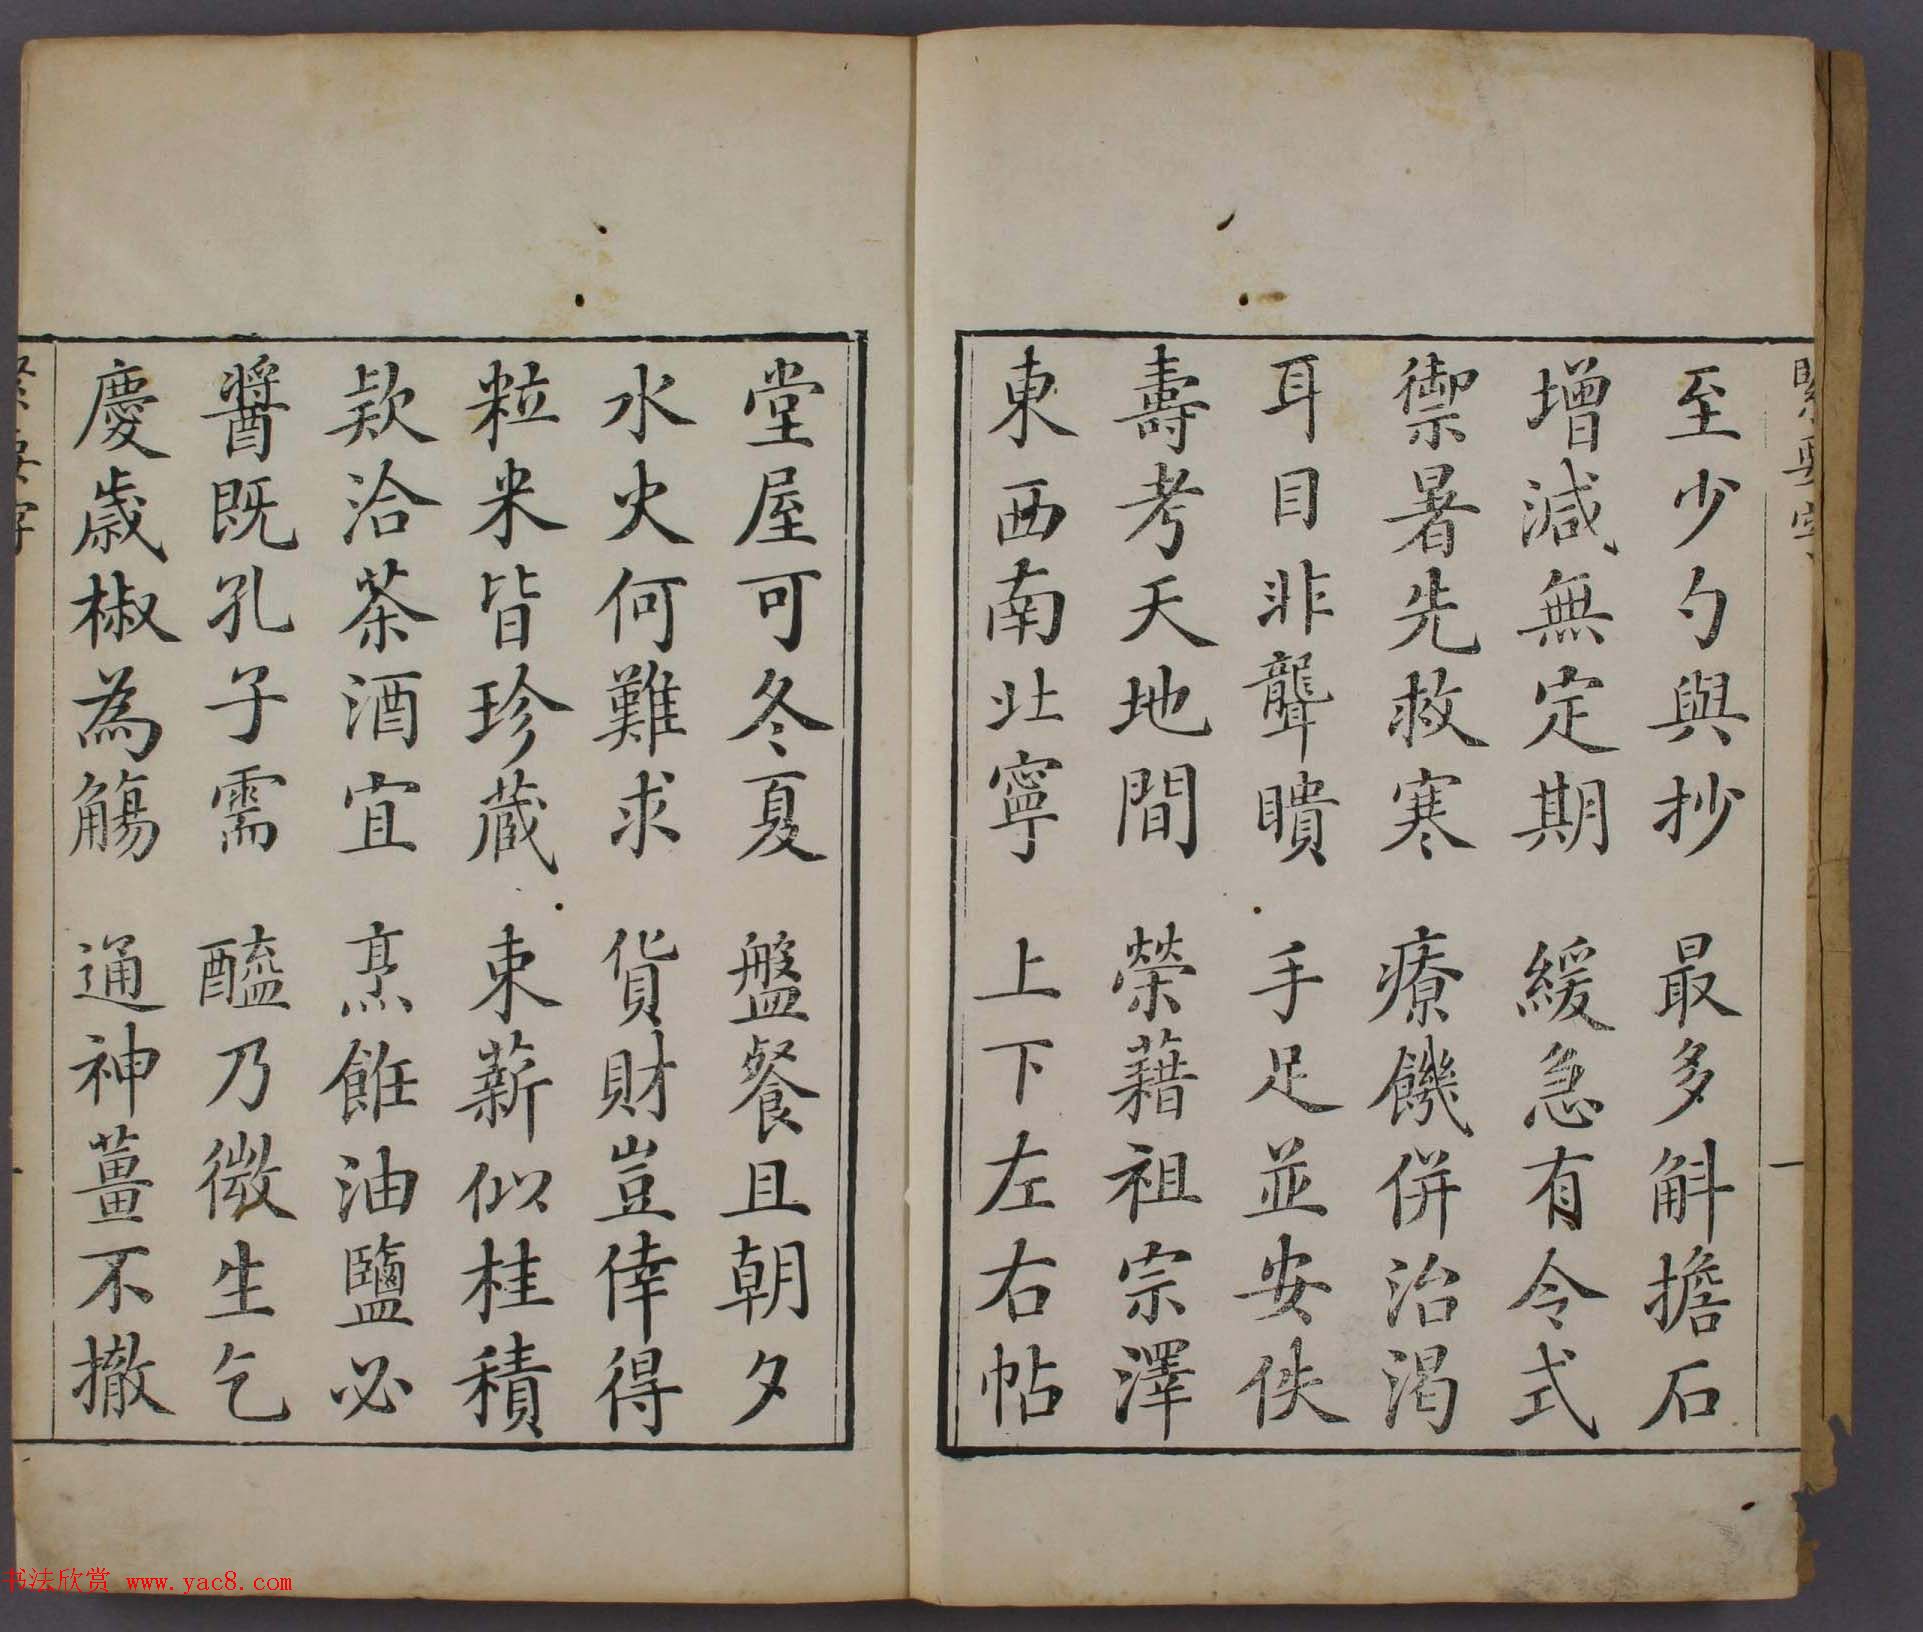 至少勺與抄 最多斛擔石
增減無定期 緩急有令式
禦暑先救寒 療饑併治渴
耳目非聾瞶 手足並安佚
壽考天地間 榮藉祖宗澤
東西南北寧 上下左右帖
堂屋可冬夏 盤餐且朝夕
水火何難求 貨財豈倖得
粒米皆珍蔵 束薪似桂積
欵洽茶酒宜 烹飪油鹽必
醬既孔子需 醯乃微生乞
慶歲椒為觴 通神薑不撤
书法欣赏 www.yac8.com